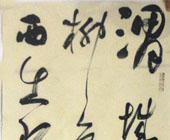 渭城
柳色
西出